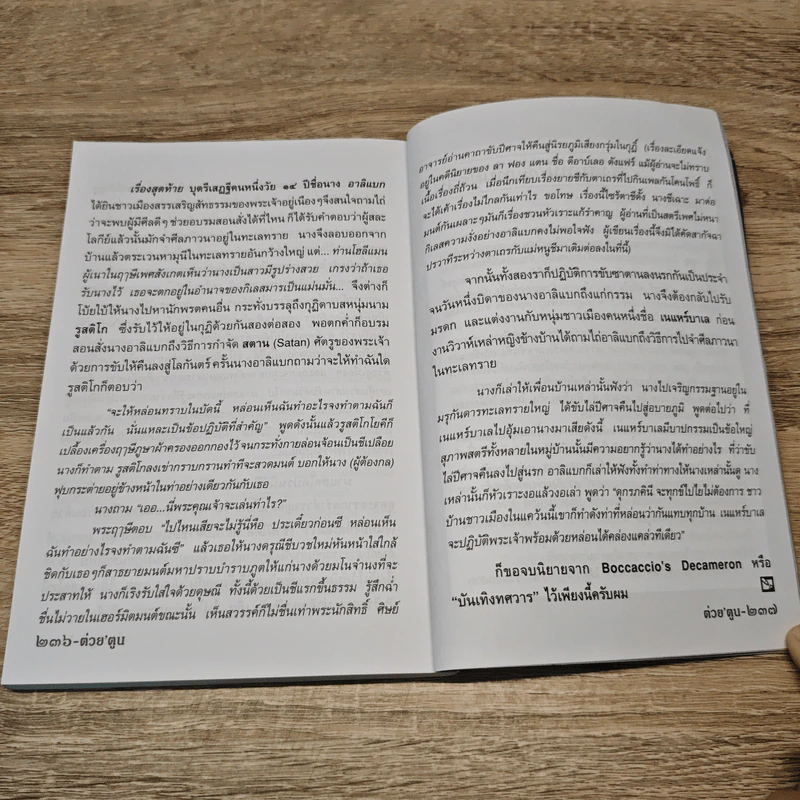 เรื่องสุดท้าย บุตรีเสฏฐีคนหนึ่งวัย ๑๔ ปีชื่อนาง อาลิแบก
ได้ยินชาวเมืองสรรเสริญสัทธรรมของพระเจ้าอยู่เนืองๆจึงสนใจถามไถ่
ว่าจะพบผู้มีศีลดีๆ ช่วยอบรมสอนสั่งได้ที่ไหน ก็ได้รับคำตอบว่าผู้สละ
โลกีย์แล้วนั้นมักจำศีลภาวนาอยู่ในทะเลทราย นางจึงลอบออกจาก
บ้านแล้วตระเวนหามุนีในทะเลทรายอันกว้างใหญ่ แต่... ท่านโฮลีแมน
ผู้เนาในฤาษีเพศสังเกตเห็นว่านางเป็นสาวมีรูปร่างสวย เกรงว่าถ้าเธอ
รับนางไว้ เธอจะตกอยู่ในอำนาจของกิเลสมารเป็นแม่นมั่น... จึงต่างก็
โบ้ยใบ้ให้นางไปหานักพรตคนอื่น กระทั่งบรรลุถึงกุฏิดาบสหนุ่มนาม
รูสติโก ซึ่งรับไว้ให้อยู่ในกุฏิด้วยกันสองต่อสอง พอตกค่ำก็อบรม
สอนสั่งนางอาลิแบกถึงวิธีการกำจัด สตาน (Satan) ศัตรูของพระเจ้า
ด้วยการขับให้คืนลงสู่โลกันตร์ ครั้นนางอาลิแบกถามว่าจะให้ทำฉันใด
รูสติโกก็ตอบว่า
“จะให้หล่อนทราบในบัดนี้ หล่อนเห็นฉันทำอะไรจงทำตามฉันก็
เป็นแล้วกัน นั่นแหละเป็นข้อปฏิบัติที่สำคัญ” พูดดังนั้นแล้วรูสติโกโยคีก็
เปลื้องเครื่องฤาษีภูษาผ้าครองออกกองไว้ จนกระทั่งกายล่อนจ้อนเป็นชีเปลือย
นางก็ทำตาม รูสติโกลงเข่ากราบกรานทำทีจะสวดมนต์ บอกให้นาง (ผู้ต้องกล)
ฟุบกระต่ายอยู่ข้างหน้าในท่าอย่างเดียวกันกับเธอ
นางถาม “เออ...นี่พระคุณเจ้าจะเล่นท่าไร?”
พระฤาษีตอบ “ไปไหนเสียจะไม่รู้นี่คือ ประเดี๋ยวก่อนซี หล่อนเห็น
ฉันทำอย่างไรจงทำตามฉันซี” แล้วเธอให้นางดรุณีชีบวชใหม่หันหน้าใส่ใกล้
ชิดกับเธอๆก็สาธยายมนต์มหาปราบบำราบภูตให้แก่นางด้วยมโนจำนงที่จะ
ประสาทให้ นางก็เริงรับใส่ใจด้วยดุษณี ทั้งนี้ด้วยเป็นชีแรกขึ้นธรรม รู้สึกฉ่ำ
ชื่นไม่วายในเฮอร์มิตมนต์ขณะนั้น เห็นสวรรค์ก็ไม่ชื่นเท่าพระนักสิทธิ์ ศิษย์
๒๓๖-ต่วย'ตูน
อาจารย์อ่านคาถาขับปีศาจให้คืนสู่นิรยภูมิเสียงกรุ่มในกุฏิ์ (เรื่องละเอียดแจ้ง
อยู่ในคดีนิยายของ ลา ฟอง แตน ชื่อ ดีอาบ์เลอ ดังแฟร์ แม้ผู้อ่านจะไม่ทราบ
เนื้อเรื่องถี่ถ้วน เมื่อนึกเทียบเรื่องยายชีกับตาเถรที่ไปกินเพลกันโคนโพธิ์ ก็
จะได้เค้าเรื่องไม่ไกลกันเท่าไร ขอโทษ เรื่องนี้ไซร้ตาชีดั้ง นางชีเฉาะ มาต่อ
มนต์กันเผลาะๆมันก็เรื่องชวนหัวเราะแก้รำคาญ ผู้อ่านที่เป็นสตรีเพศไม่หนา
กิเลสความงั่งอย่างอาลิแบกคงไม่พอใจฟัง ผู้เขียนเรื่องนี้จึงมิได้คัดสากัจฉา
ปรวาทีระหว่างตาเถรกับแม่หนูชีมาเติมต่อลงในที่นี้)
จากนั้นทั้งสองราก็ปฏิบัติการขับซาตานลงนรกกันเป็นประจำ
จนวันหนึ่งบิดาของนางอาลิแบกถึงแก่กรรม นางจึงต้องกลับไปรับ
มรดก และแต่งงานกับหนุ่มชาวเมืองคนหนึ่งชื่อ เนแหร์บาเล ก่อน
งานวิวาห์เหล่าหญิงข้างบ้านได้ถามไถ่อาลิแบกถึงวิธีการไปจำศีลภาวนา
ในทะเลทราย
นางก็เล่าให้เพื่อนบ้านเหล่านั้นฟังว่า นางไปเจริญกรรมฐานอยู่ใน
มรุกันดารทะเลทรายใหญ่ ได้ขับไล่ปีศาจคืนไปสู่อบายภูมิ พูดต่อไปว่า ที่
เนแหร์บาเลไปอุ้มเอานางมาเสียดังนี้ เนแหร์บาเลมีบาปกรรมเป็นข้อใหญ่
สุภาพสตรีทั้งหลายในหมู่บ้านนั้นมีความอยากรู้ว่านางได้ทำอย่างไร ที่ว่าขับ
ไล่ปีศาจคืนลงไปสู่นรก อาลิแบกก็เล่าให้ฟังทั้งทำท่าทางให้นางเหล่านั้นดู นาง
เหล่านั้นก็หัวเราะงอแล้วงอเล่า พูดว่า “ดูกรภคินี จะทุกข์ไปใยไม่ต้องการ ชาว
บ้านชาวเมืองในแคว้นนี้เขาก็ทำดังท่าที่หล่อนว่ากันแทบทุกบ้าน เนแหร์บาเล
จะปฏิบัติพระเจ้าพร้อมด้วยหล่อนได้คล่องแคล่วทีเดียว”
ก็ขอจบนิยายจาก Boccaccio's Decameron หรือ
“บันเทิงทศวาร” ไว้เพียงนี้ครับผม
ต่วย'ตูน-๒๓๗